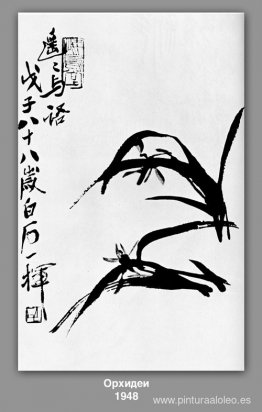 戊子八十八歲白石一揮
Орхидеи
1948
www.pinturaaloleo.es